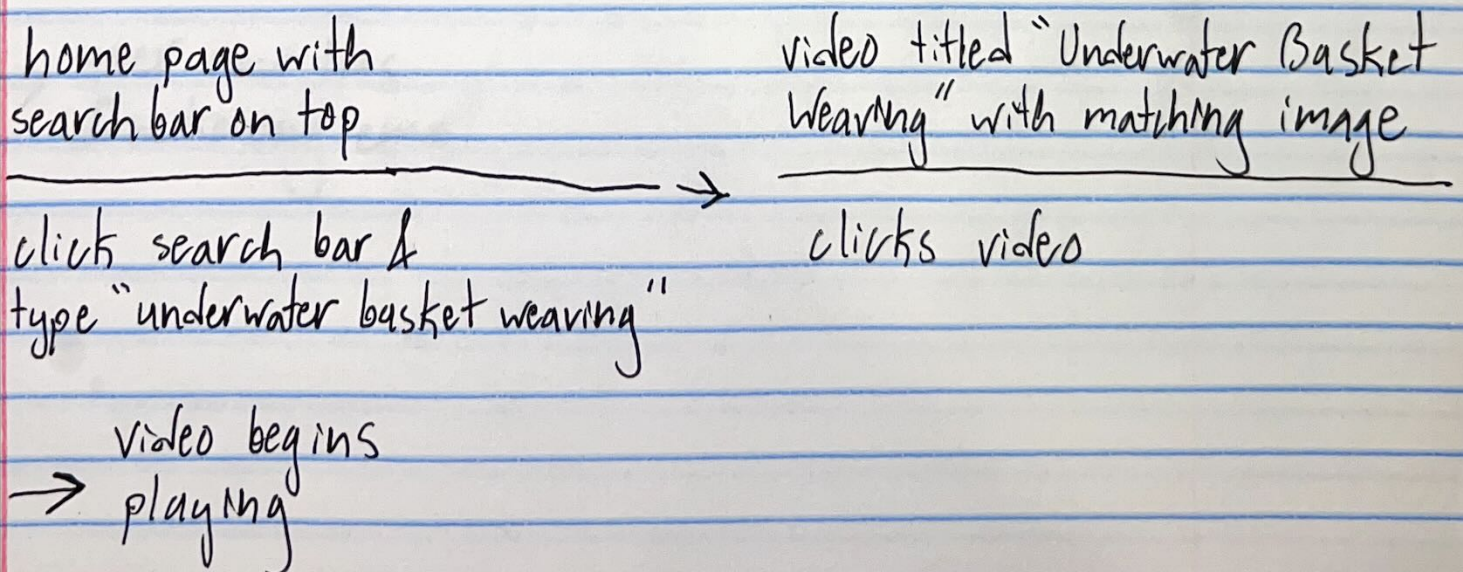 home page with
search bar on top
click search bar &
type "underwater basket weaving"
→ video titled "Underwater Basket
Weaving" with matching image
clicks video
→ video begins
playing